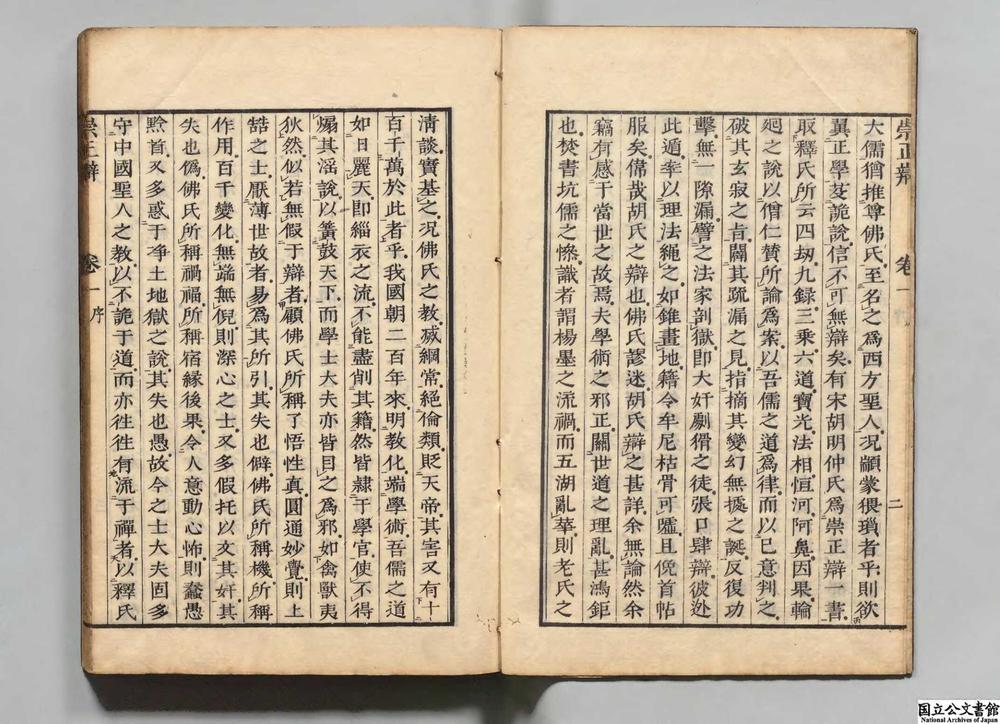 崇正辯　卷一　二
大儒猶推尊佛氏至名之爲西方聖人况顓蒙猥瑣者乎則欲
翼正學芟詭說信不可無辯矣有宋胡明仲氏爲崇正辯一書
取釋氏所云四刼九録三乘六道寶光法相恒河阿鼻因果輪
廻之說以僧仁賛所論爲案以吾儒之道爲律而以己意判之
破其玄寂之肯關其疏漏之見指摘其變幻無據之誕反復功
擊無一隙漏譬之法家剖獄即大奸劇猾之徒張口肆辯彼处
此遁率以理法繩之如錐畫地籍令牟尼枯骨可噓且俛首帖
服矣偉哉胡氏之辯也佛氏謬迷胡氏辯之甚詳余無論然余
竊有感于當世之故焉夫學術之邪正關世道之理亂甚鴻鉅
也焚書坑儒之慘識者謂楊墨之流禍而五湖亂華則老氏之
清談實基之况佛氏之教滅綱常絕倫類貶天帝其害又有十
百千萬於此者乎我國朝二百年來明教化端學術吾儒之道
如日麗天即緇衣之流不能盡削其籍然皆隷于學官使不得
煽其滛說以簧鼓天下而學士大夫亦皆目之爲邪如禽獸夷
狄然似若無假于辯者顧佛氏所稱了悟性真圓通妙覺則上
喆之士厭薄世故者易爲其所引其失也僻佛氏所稱機所稱
作用百千變化無端無倪則深心之士又多假托以文其奸其
失也僞佛氏所稱禍福所稱宿緣後果令人意動心怖則蠢愚
黔首又多惑于净土地獄之說其失也愚故今之士大夫固多
守中國聖人之教以不詭于道而亦徃徃有流于禪者以釋氏
崇正辯　卷一　序
国立公文書館
National Archives of Japan